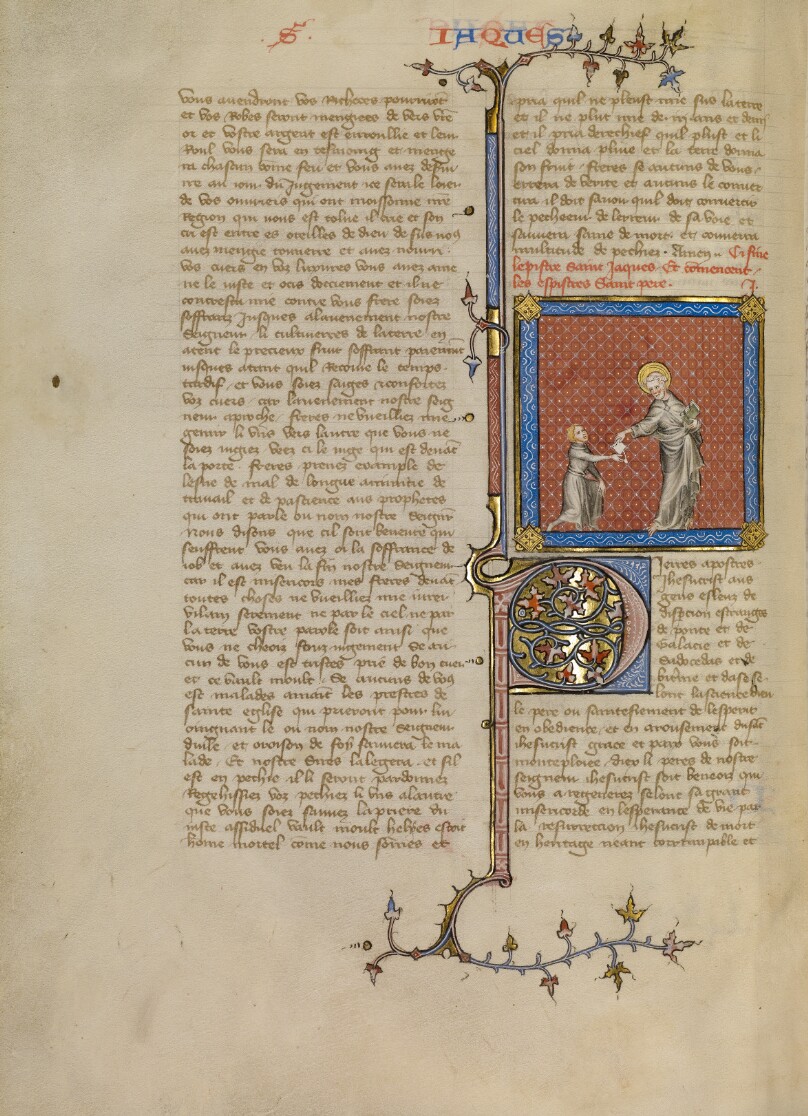 S. IAQUES
vous auendront vos Richeces pourriront
et vos Robes seront mengiees de vers vre
or et vostre argent est enroullie et leur
Roul vous sera en tesmoing et menge
ra chascun come feu et vous auez
ire au iour du Jugement
de vos ouuriers qui ont moissonne
Region qui vous est tolue il crie et son
cri est entre es oreilles de dieu de
auez mengie en terre et auez nourri
vos cuers en voz luxures vous auez
ne le iuste et ocis et il ne
contresta mie contre vous frere soiez
souffranz Jusques alauenement nostre
Seigneur li cultiuerres de laterre en
atent le precieux fruit souffrant
iusques atant quil Recoiue le temps
tardif et vous soiez saiges confortez
voz cuers car lauenement nostre seig
neur aproche freres ne vueilliez mie
gemir li vns vers lautre que vous ne
soiez iugiez veez ci le iuge qui est deuāt
la porte freres prenez example de
de mal de longue de
trauail et de pascience aus prophetes
qui ont parle ou nom nostre Seignr
Nous disons que cil sont beneure qui
seuffrent vous auez oi la souffrance de
iob et auez veu la fin nostre Seigneur
car il est misericors mes freres deuāt
toutes choses ne vueilliez mie iurer
vilain serement ne par le ciel ne par
la terre vostre parole soit ainsi que
vous ne cheoir souz iugement Se au
cun de vous est tristes prie de bon cuer
et ce vault moult Se aucuns de vos
est malades amaine les prestres de
sainte eglise qui prieront pour lui
oingnant le ou nom nostre Seigneur
duile Et oroison de foy sauuera le ma
lade Et nostre Sires lalegera et sil
est en pechie il li seront pardonnez
Regehissiez voz pechiez li vns alautre
que vous soiez sauuez la priere du
iuste assiduel vault moult helyes estoit
home mortel come nous somes et
pria quil ne pleust mie sus laterre
et il ne plut mie de iij ans et demi
et il pria derechief quil plust et li
ciel donna pluie et la terre donna
son fruit freres se aucuns de vous
errera de verite et aucuns le conuer
tira il doit sauoir quil doit conuertir
le pecheeur de lerreur de sa voie et
sauuera same de mort et couuerra
multitude de pechiez Amen Ci fine
lepistre Saint Jaques Et cōmencent
les espistres Saint pere. I.
Pierres apostres
ihesucrist aus
gens esleuz de
estranges
de ponte et de
Galacie et de
et de
bitine et dase se
lonc la science dieu
le pere ou saintefiement de lesperit
en obedience et en arousement du sāc
ihesucrist grace et paix vous soit
monteploiee diex li peres de nostre
seigneur ihesucrist soit benoiz qui
vous a regenerez selonc sa grant
misericorde en lesperance de vie par
la resurrection ihesucrist de mort
en heritage neant corrumpable et